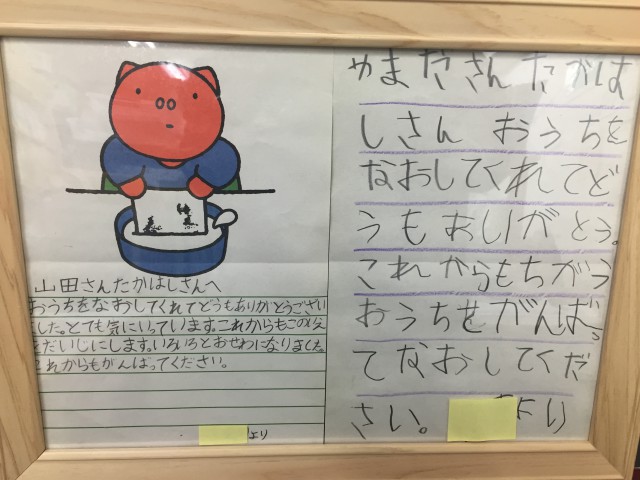 山田さんたかはしさんへ
おうちをなおしてくれてどうもありがとうござい
ました。とても気にいっています。これからもこの
をだいじにします。いろいろとおせわになりました。
これからもがんばってください。
より
やまださんたかは
しさん おうちを
なおしてくれてど
うもありがとう。
これからもちがう
おうちをがんばっ
てなおしてくだ
さい。 より